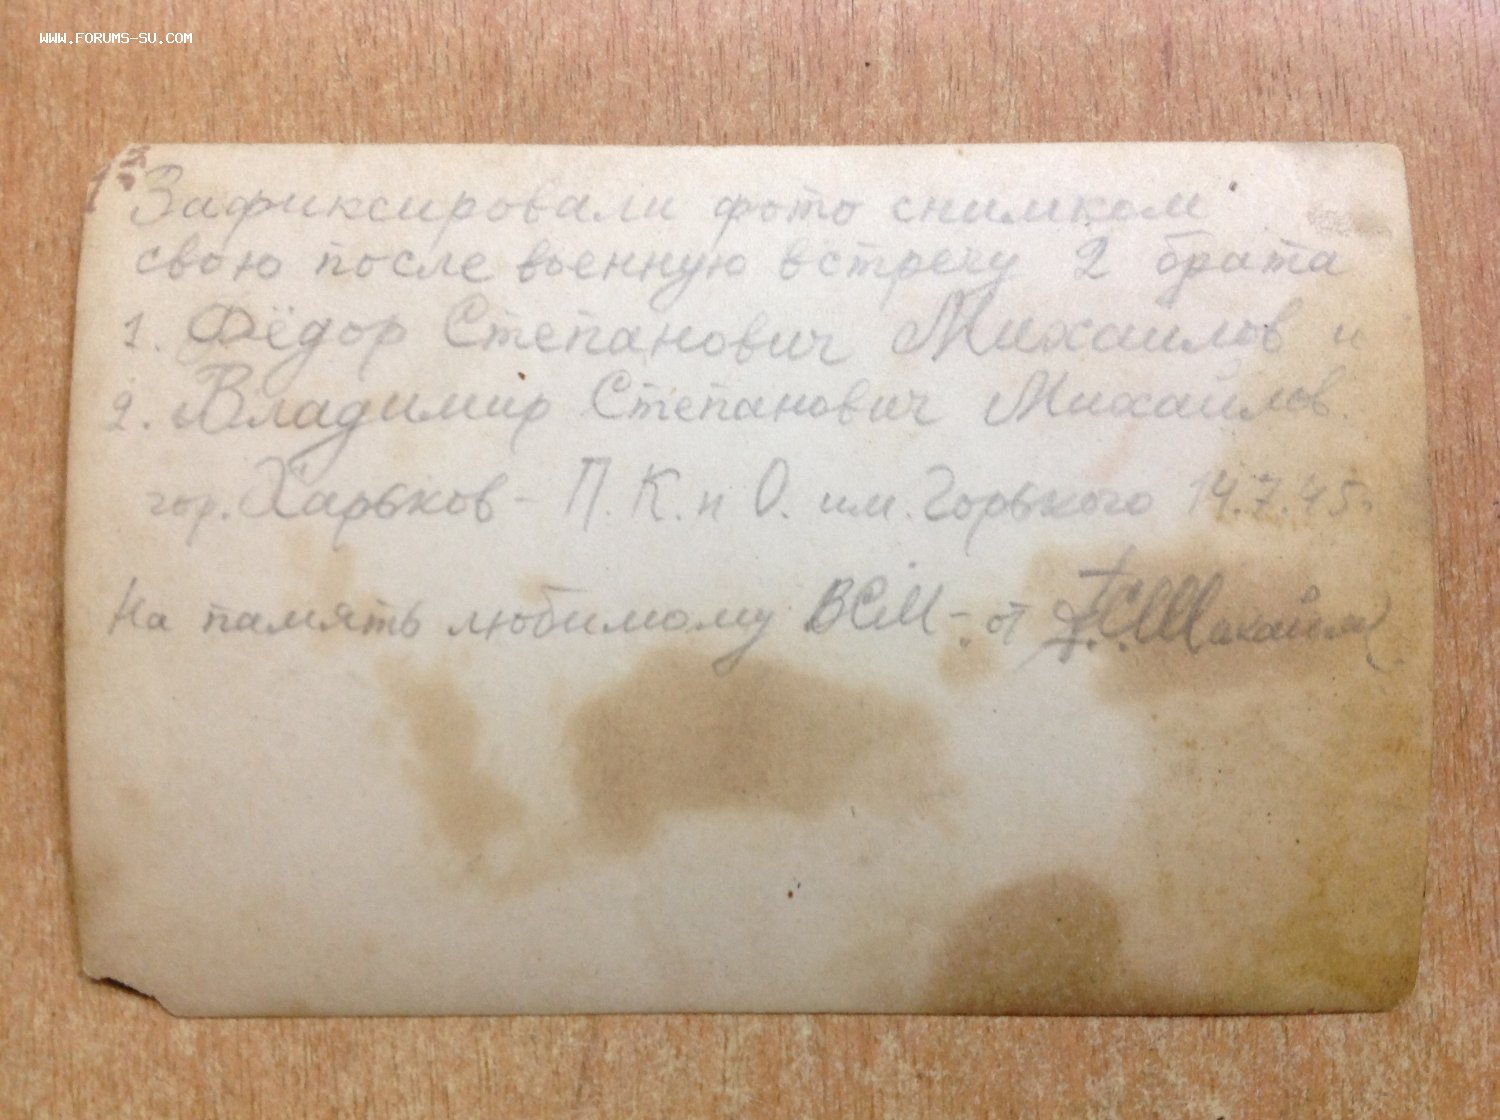 WWW.FORUMS-SU.COM
Зафиксировали фото снимком
свою после военную встречу 2 брата
1. Фёдор Степанович Михайлов и
2. Владимир Степанович Михайлов.
гор. Харьков - П. К. и О. им. Горького 14.7.45г.
На память любимому ВСМ - от